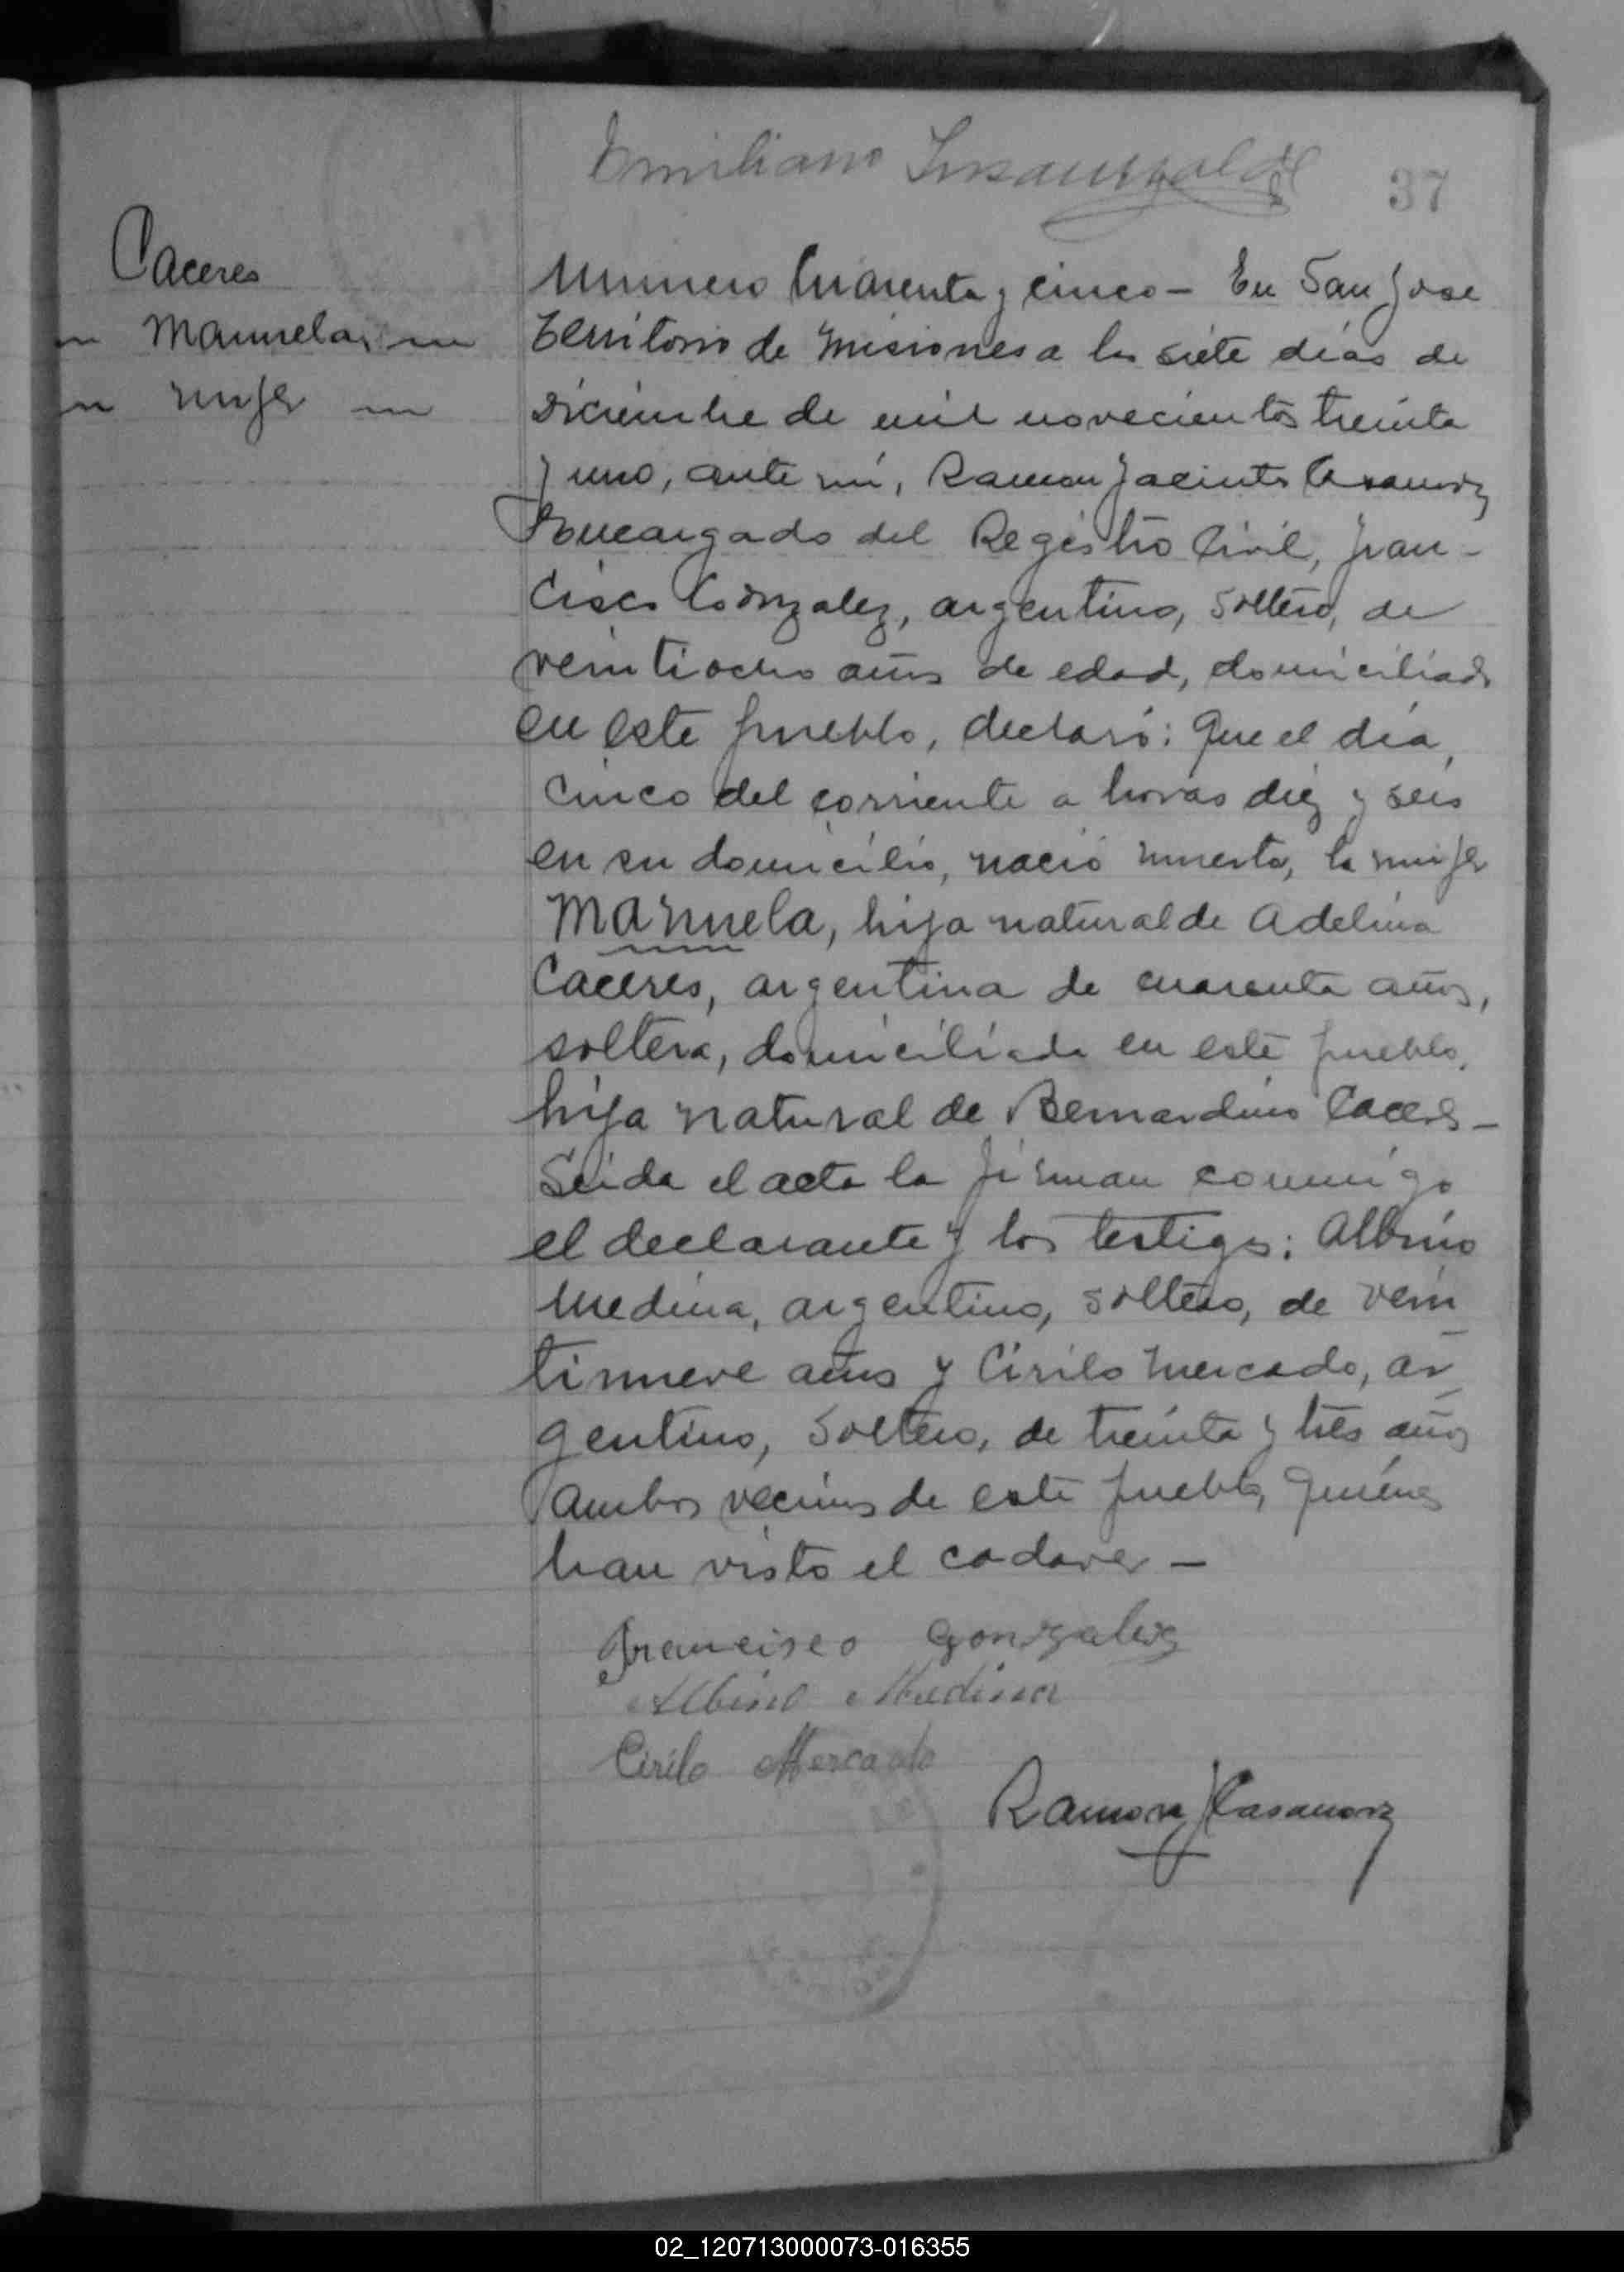 Emiliano
37
Caceres
Manuela
mujer
Numero Cuarenta y cinco - En San Jose
Territorio de Misiones a los siete dias de
Diciembre de mil novecientos treinta
y uno, ante mí, Ramon Jacinto Casanova
Encargado del Registro Civil, Fran-
cisco Gonzalez, argentino, soltero, de
veintiocho años de edad, domiciliado
en este pueblo, declaró: Que el día,
cinco del corriente a horas diez y seis
en su domicilio, nació muerta, la mujer
Manuela, hija natural de Adelina
Caceres, argentina de cuarenta años,
soltera, domiciliada en este pueblo,
hija natural de Bernardino Caceres -
Leida el acta la firman conmigo
el declarante y los testigos: Albino
Medina, argentino, soltero, de vein
tinueve años y Cirilo Mercado, ar
gentino, soltero, de treinta y tres años
ambos vecinos de este pueblo, quienes
han visto el cadaver -
Francisco Gonzalez
Albino Medina
Cirilo Mercado
Ramon J Casanova
02_120713000073-016355